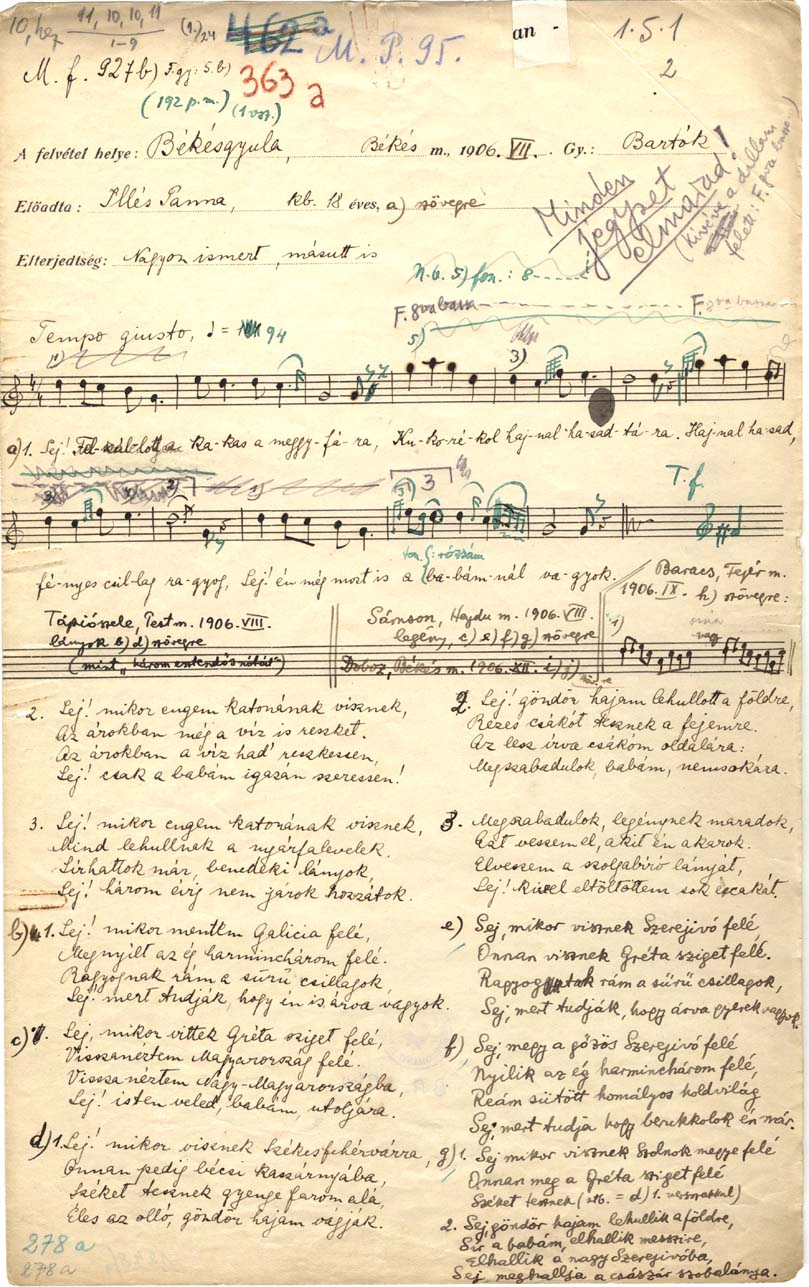 10, hez 11, 10, 10, 11 (1.) 24 462a M. P. 95. an - 1.5.1
1-9
2
M. f. 927b) F. gy: 5. b) 363 a
(192 p. m.) (1 vsz.)
A felvétel helye: Békésgyula, Békés m., 1906. VII. Gy.: Bartók
Előadta: Illés Panna, kb. 18 éves, a) szövegre
Minden
jegyzet
elmarad!
(kivéve a dallam
felett: F. 8va bassa)
Elterjedtség: Nagyon ismert, másutt is
N. b. 5) fon.: 8
F. 8va bassa F. 8va bassa
Tempo giusto, ♩ = 94
5) 3)
a) 1. Sej! Fel- a ka-kas a meggy-fá-ra, Ku-ko-ré-kol haj-nal ha-sad-tá-ra. Haj-nal ha-sad,
3
T. f.
fon. rózsám
fé-nyes csil-lag ra-gyog, Sej! én még most is a ba-bám-nál va-gyok.
Baracs, Fejér m.
1906. IX. h) szövegre:
Tápiószele, Pest m. 1906. VIII.
lányok b) d) szövegre
(mint "három entendős nótát")
Sámson, Hajdu m. 1906. VIII.
legény, c) e) f) g) szövegre
Doboz, Békés m. 1906. XII. i) j)
1) vagy
2. Sej! mikor engem katonának visznek,
Az árokban még a víz is reszket.
Az árokban a víz had' reszkessen,
Sej! csak a babám igazán szeressen!
3. Sej! mikor engem katonának visznek,
Mind lehullnak a nyárfalevelek.
Sírhattok már, benedeki lányok,
Sej! három évig nem járok hozzátok.
b) 1. Sej! mikor mentem Galicia felé,
Megnyílt az ég harminchárom felé.
Ragyognak rám a sűrű csillagok,
Sej! mert tudják, hogy én is árva vagyok.
c) 1. Sej, mikor vittek Gréta sziget felé,
Visszanéztem Magyarország felé.
Vissza néztem Nagy-Magyarországba,
Sej! isten veled, babám, utoljára.
d) 1. Sej! mikor visznek Székesfehérvárra,
Onnan pedig bécsi kaszárnyába,
Széket tesznek gyenge farom alá,
Éles az olló, göndör hajam vágják.
278 a
278 a
2. Sej! göndör hajam lehullott a földre,
Rezes csákót tesznek a fejemre.
Az lesz írva csákóm oldalára:
Megszabadulok, babám, nemsokára.
3. Megszabadulok, legénynek maradok,
Azt veszem el, akit én akarok.
Elveszem a szolgabíró lányát,
Sej! kivel eltöltöttem sok éccakát.
e) Sej, mikor visznek Szerejivó felé,
Onnan visznek Gréta sziget felé.
Ragyogtak rám a sűrű csillagok,
Sej, mert tudják, hogy árva gyerek vagyok.
f) Sej, megy a gőzös Szerejivó felé
Nyilik az ég harminchárom felé,
Reám sütött homályos holdvilág
Sej, mert tudja hogy berukkolok én már.
g) 1. Sej mikor visznek Szolnok megye felé
Onnan meg a Gréta sziget felé
Széket tesznek (stb. = d) 1. versszakkal)
2. Sej, göndör hajam lehullik a földre,
Sír a babám, elhallik messzire,
Elhallik a nagy Szerejivóba,
Sej meghallja a császár szobalánya.